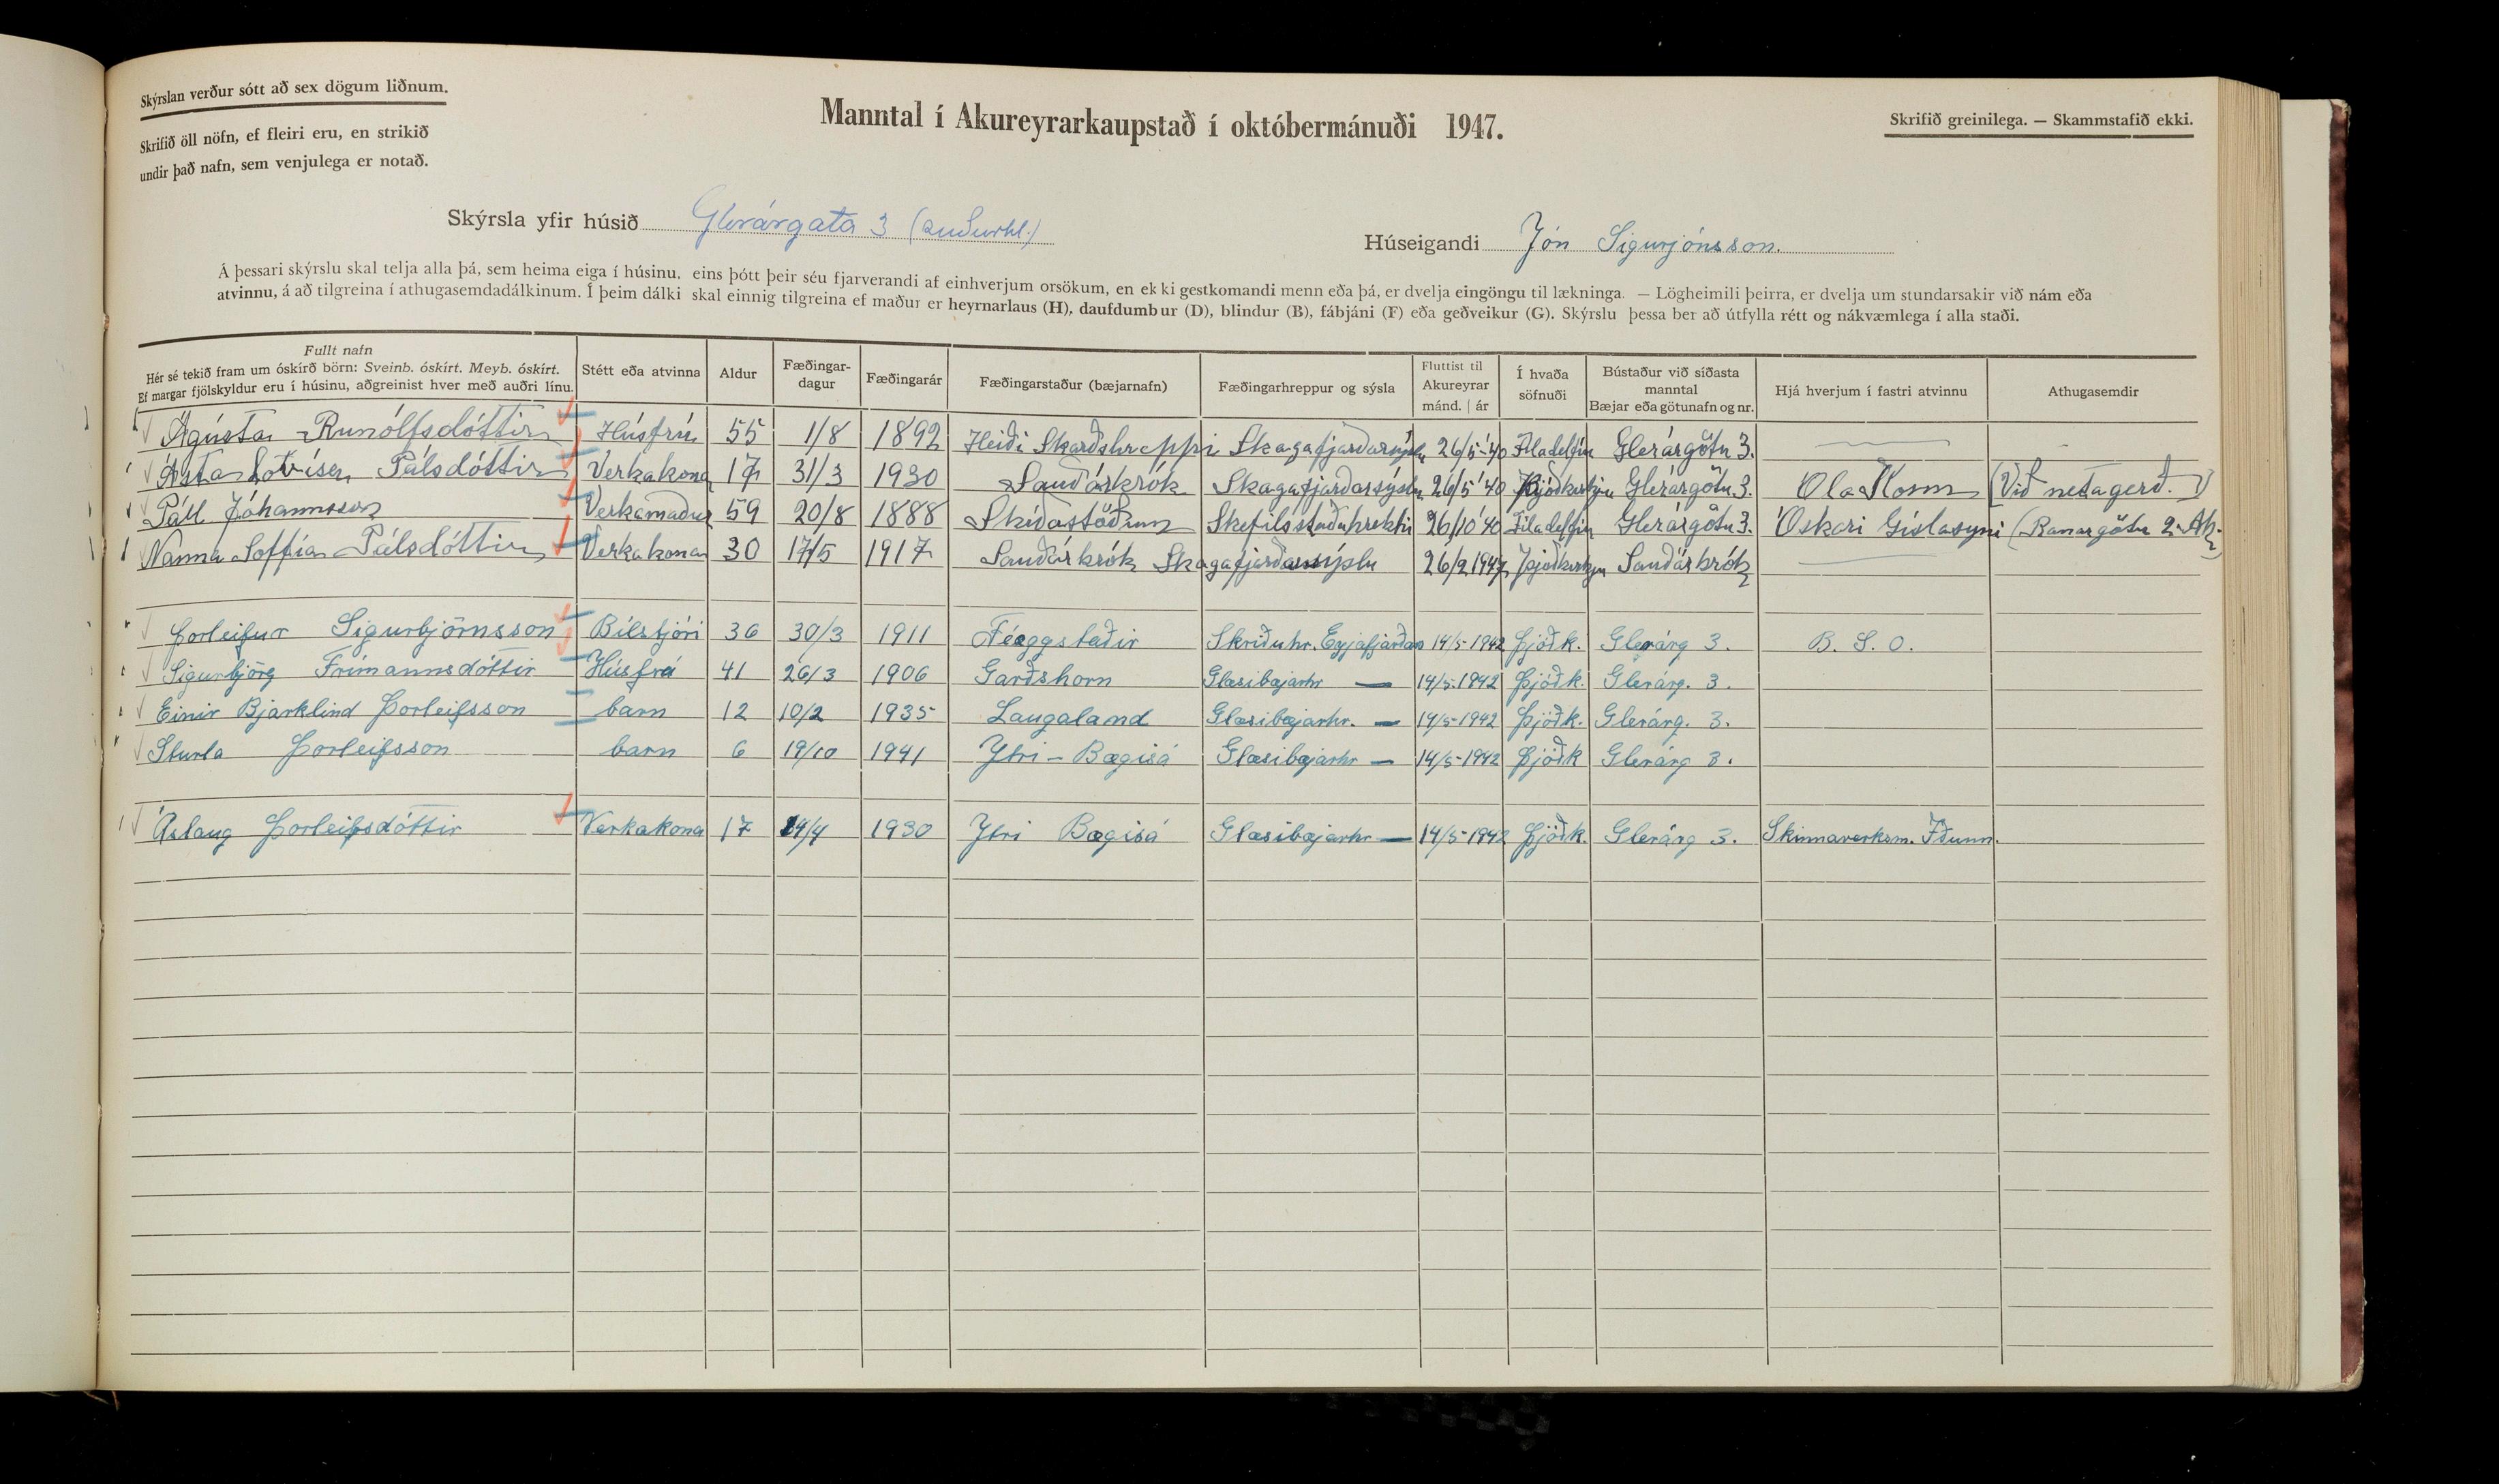 Skýrslan verður sótt að sex dögum liðnum.
Skrifið öll nöfn, ef fleiri eru, en strikið
undir það nafn, sem venjulega er notað.
Manntal í Akureyrarkaupstað í októbermánuði 1947.
Skrifið greinilega. — Skammstafið ekki.
Skýrsla yfir húsið Glerárgata 3 (suðurhl.)
Húseigandi Jón Sigurjónsson.
Á þessari skýrslu skal telja alla þá, sem heima eiga í húsinu, eins þótt þeir séu fjarverandi af einhverjum orsökum, en ekki gestkomandi menn eða þá, er dvelja eingöngu til lækninga. — Lögheimili þeirra, er dvelja um stundarsakir við nám eða
atvinnu, á að tilgreina í athugasemdadálkinum. Í þeim dálki skal einnig tilgreina ef maður er heyrnarlaus (H), daufdumbur (D), blindur (B), fábjáni (F) eða geðveikur (G). Skýrslu þessa ber að útfylla rétt og nákvæmlega í alla staði.
Fullt nafn
Hér sé tekið fram um óskírð börn: Sveinb. óskírt. Meyb. óskírt.
Ef margar fjölskyldur eru í húsinu, aðgreinist hver með auðri línu.
Stétt eða atvinna
Aldur
Fæðingar-
dagur
Fæðingarár
Fæðingarstaður (bæjarnafn)
Fæðingarhreppur og sýsla
Fluttist til
Akureyrar
mánd. | ár
Í hvaða
söfnuði
Bústaður við síðasta
manntal
Bæjar eða götunafn og nr.
Hjá hverjum í fastri atvinnu
Athugasemdir
Ágústa Runólfsdóttir Húsfrú 55 1/8 1892 Heiði Skarðshreppi Skagafjarðarsýslu 26/5 '40 Filadelfíu Glerárgötu 3.
Ásta Lovísa Pálsdóttir Verkakona 17 31/3 1930 Sauðárkrók Skagafjarðarsýslu 26/5 '40 Þjóðkirkju Glerárgötu 3. Óla Konn (Við netagerð.)
Páll Jóhannsson Verkamaður 59 20/8 1888 Skíðastöðum Skefilsstaðahreppi 26/10 '40 Filadelfíu Glerárgötu 3. Óskari Gíslasyni (Ránargötu 2 Ak.)
Nanna Soffía Pálsdóttir Verkakona 30 17/5 1917 Sauðárkrók Skagafjarðarsýslu 26/2 1947 Þjóðkirkju Sauðárkrók
Þorleifur Sigurbjörnsson Bílstjóri 36 30/3 1911 Féeggstaðir Skriðuhr. Eyjafjarðar 14/5-1942 Þjóðk. Glerárg 3. B. S. O.
Sigurbjörg Frímannsdóttir Húsfrú 41 26/3 1906 Garðshorn Glæsibæjarhr — 14/5-1942 Þjóðk. Glerárg. 3.
Einir Bjarklind Þorleifsson barn 12 10/2 1935 Laugaland Glæsibæjarhr. — 14/5-1942 Þjóðk. Glerárg. 3.
Sturla Þorleifsson barn 6 19/10 1941 Ytri-Bægisá Glæsibæjarhr — 14/5-1942 Þjóðk Glerárg 3.
Áslaug Þorleifsdóttir Verkakona 17 14/4 1930 Ytri Bægisá Glæsibæjarhr — 14/5-1942 Þjóðk. Glerárg 3. Skinnaverksm. Iðunn.